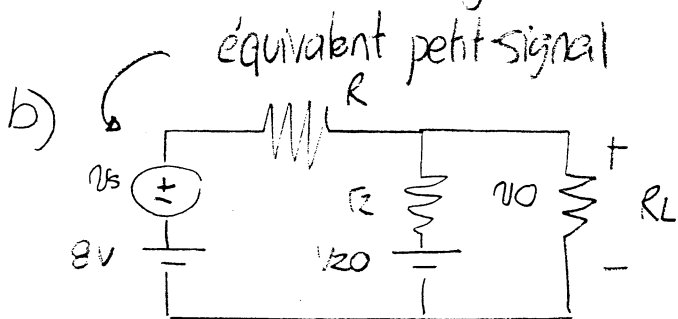 équivalent petit-signal
b)
R
vs
+
-
8V
rz
Vzo
+
vo
-
RL